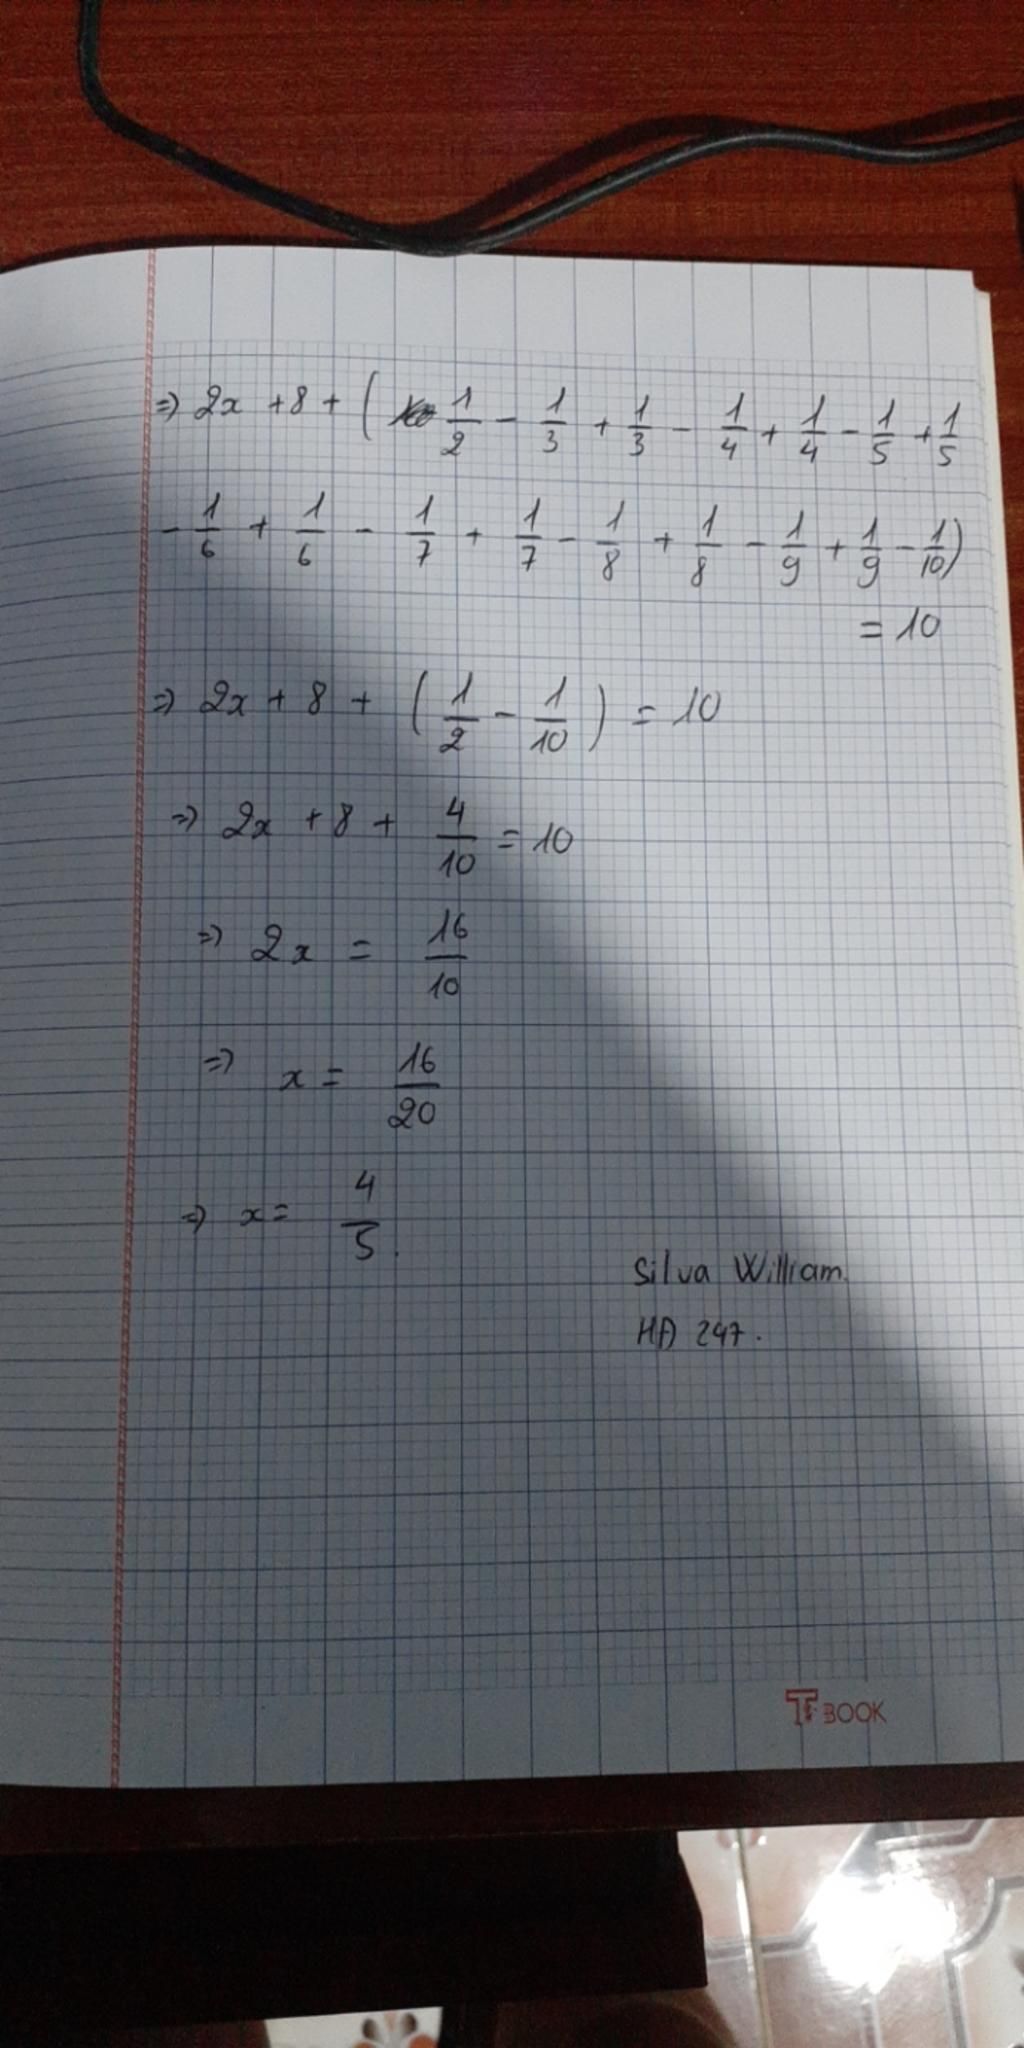 ⇒ 2x + 8 + ( 1/2 - 1/3 + 1/3 - 1/4 + 1/4 - 1/5 + 1/5
- 1/6 + 1/6 - 1/7 + 1/7 - 1/8 + 1/8 - 1/9 + 1/9 - 1/10)
= 10
⇒ 2x + 8 + ( 1/2 - 1/10 ) = 10
⇒ 2x + 8 + 4/10 = 10
⇒ 2x = 16/10
⇒ x = 16/20
⇒ x = 4/5.
Silva William.
HD 247.
T BOOK